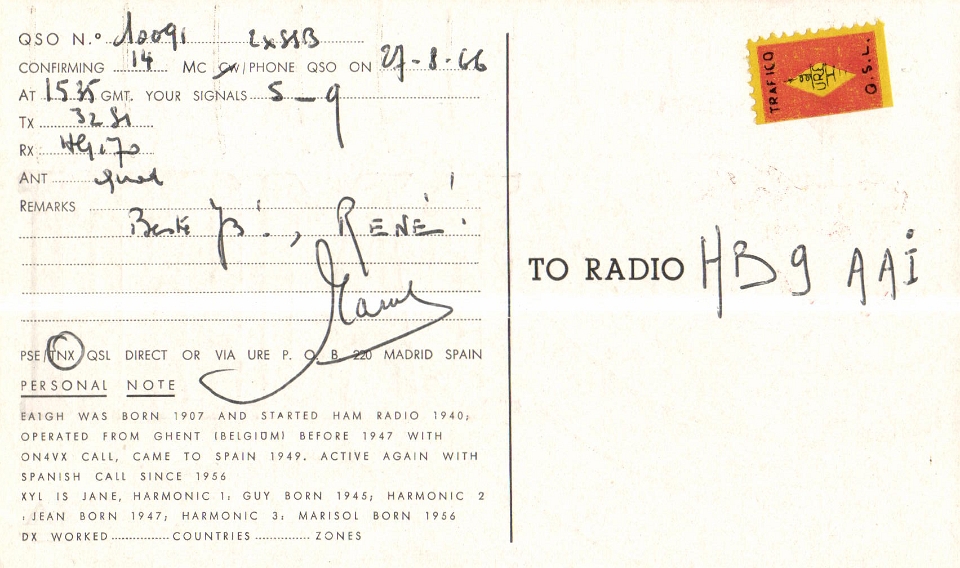 QSO N.º 10091 2xSSB
CONFIRMING 14 MC CW/PHONE QSO ON 27-8-66
AT 1535 GMT. YOUR SIGNALS 5-9
TX 32 S1
RX HQ170
ANT quad
REMARKS
Beste 73!, RENÉ!
PSE/TNX QSL DIRECT OR VIA URE P. O. B. 220 MADRID SPAIN
PERSONAL NOTE
EA1GH WAS BORN 1907 AND STARTED HAM RADIO 1940;
OPERATED FROM GHENT (BELGIUM) BEFORE 1947 WITH
ON4VX CALL, CAME TO SPAIN 1949. ACTIVE AGAIN WITH
SPANISH CALL SINCE 1956
XYL IS JANE, HARMONIC 1: GUY BORN 1945; HARMONIC 2
: JEAN BORN 1947; HARMONIC 3: MARISOL BORN 1956
DX WORKED COUNTRIES ZONES
TRAFICO
URE
Q.S.L.
TO RADIO HB9 AAI